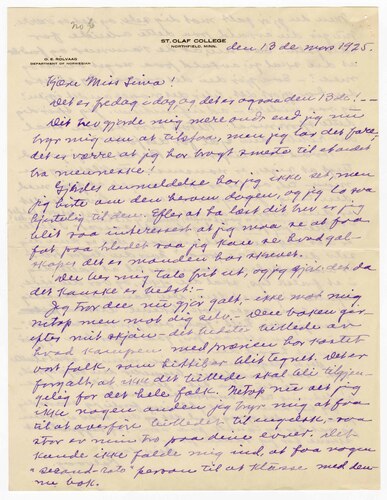 no 6
ST. OLAF COLLEGE
NORTHFIELD, MINN.
den 13de mars 1925.
O. E. ROLVAAG
DEPARTMENT OF NORWEGIAN
Kjære Miss Tiina!
Det er fredag idag og det er ogsaa den 13de! —
Dit brev gjorde mig mere ondt end jeg nu
bryr mig om at tilstaa, men jeg lar det fare,
det er værre at jeg har bragt smerte til et andet
menneske!
anmeldelse har jeg ikke set, men
jeg hørte om den herom dagen, og jeg lo saa
hjertelig til den. Efter at ha læst dit brev er jeg
blit saa interessert at jeg maa se at faa
fat paa bladet saa jeg kan se hvad gal-
skaper det er manden har skrevet.
Du ber mig tale frit ut, og jeg gjør det da
det kanske er bedst: —
Jeg tror du nu gjør galt — ikke mot mig
netop men mot dig selv. Den boken gir —
efter mit skjøn — det bedste billede av
hvad kampen med prærien har kostet
vort folk, som hittil er blit tegnet. Det er
for galt, at ikke det billede skal bli tilgjæn-
gelig for det hele folk. Netop nu vet jeg
ikke nogen anden jeg bryr mig at faa
til at overføre billedet til engelsk, — saa
stor er min tro paa dine evner. Det
kunde ikke falde mig ind, at faa nogen
"second-rate" person til at klusse med den-
ne bok.